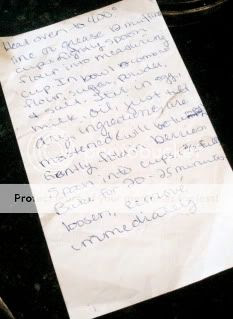 Heat oven to 400°
line or grease 12 muffin
cups. Lightly spoon
flour into measuring
cup. In bowl combine
flour, sugar, powder,
& salt. Stir in egg,
milk, oil, just till
dry ingredients are
moistened (will be
Gently fold in berries
Spoon into cups. full
Bake for 20-25 minutes
loosen, & remove
immediately
photobucket